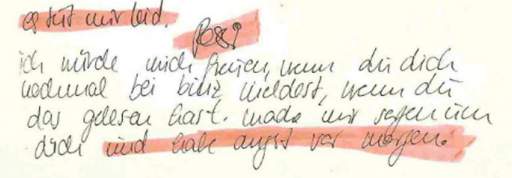 es tut mir leid.
ich würde mich freuen, wenn du dich
nochmal bei mir meldest, wenn du
das gelesen hast. mache mir sorgen um
dich und habe angst vor morgen.